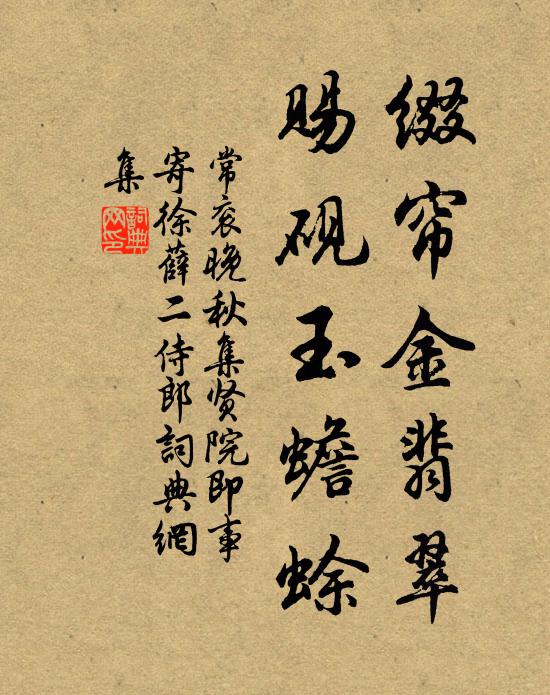 缀帘金翡翠
赐砚玉蟾蜍
常衮晚秋集贤院即事
寄徐薛二侍郎詞典網
集
詞典
网印